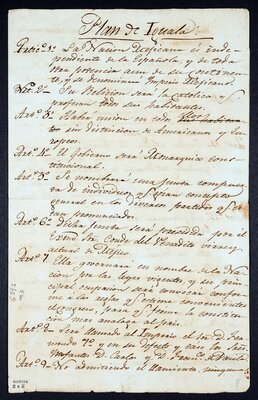 Plan de Iguala.
Artic.o 1.o La Nacion Mexicana es inde
pendiente de la Española, y de toda
otra potencia aun de su Continen
te, y se denominará Imperio Mejicano.
Art. 2.o Su Relijion será la católica q.e
profesan todos sus habitantes.
Art.o 3.o Habrá union en todo
sin distincion de Americanos y Eu
ropeos.
Art.o 4.o El Gobierno será Monarquico cons
titucional.
Art.o 5.o Se nombrará una junta compues
ta de individuos q.e gozan concepto
general en los diversos partidos q.e se
han pronunciado.
Art.o 6.o Dicha junta será presidida por el
Exmo. Sor. Conde del Venadito virrey
actual de Mejico.
Art.o 7 Ella governará en nombre de la Na
cion por las leyes vigentes, y su prin
cipal ocupacion será convocar confor
me a las reglas q.e crea convenientes
el congreso, para q.e forme la constitu
cion mas analoga al país.
Art.o 8.o Será llamado al Imperio el Sr. D. Fer
nando 7.o y en su defecto y caso los Sres.
Infantes D. Carlos y D. Franc.o de Paula.
Art.o 9.o No admitiendo el llamamiento ninguno
GARCIA